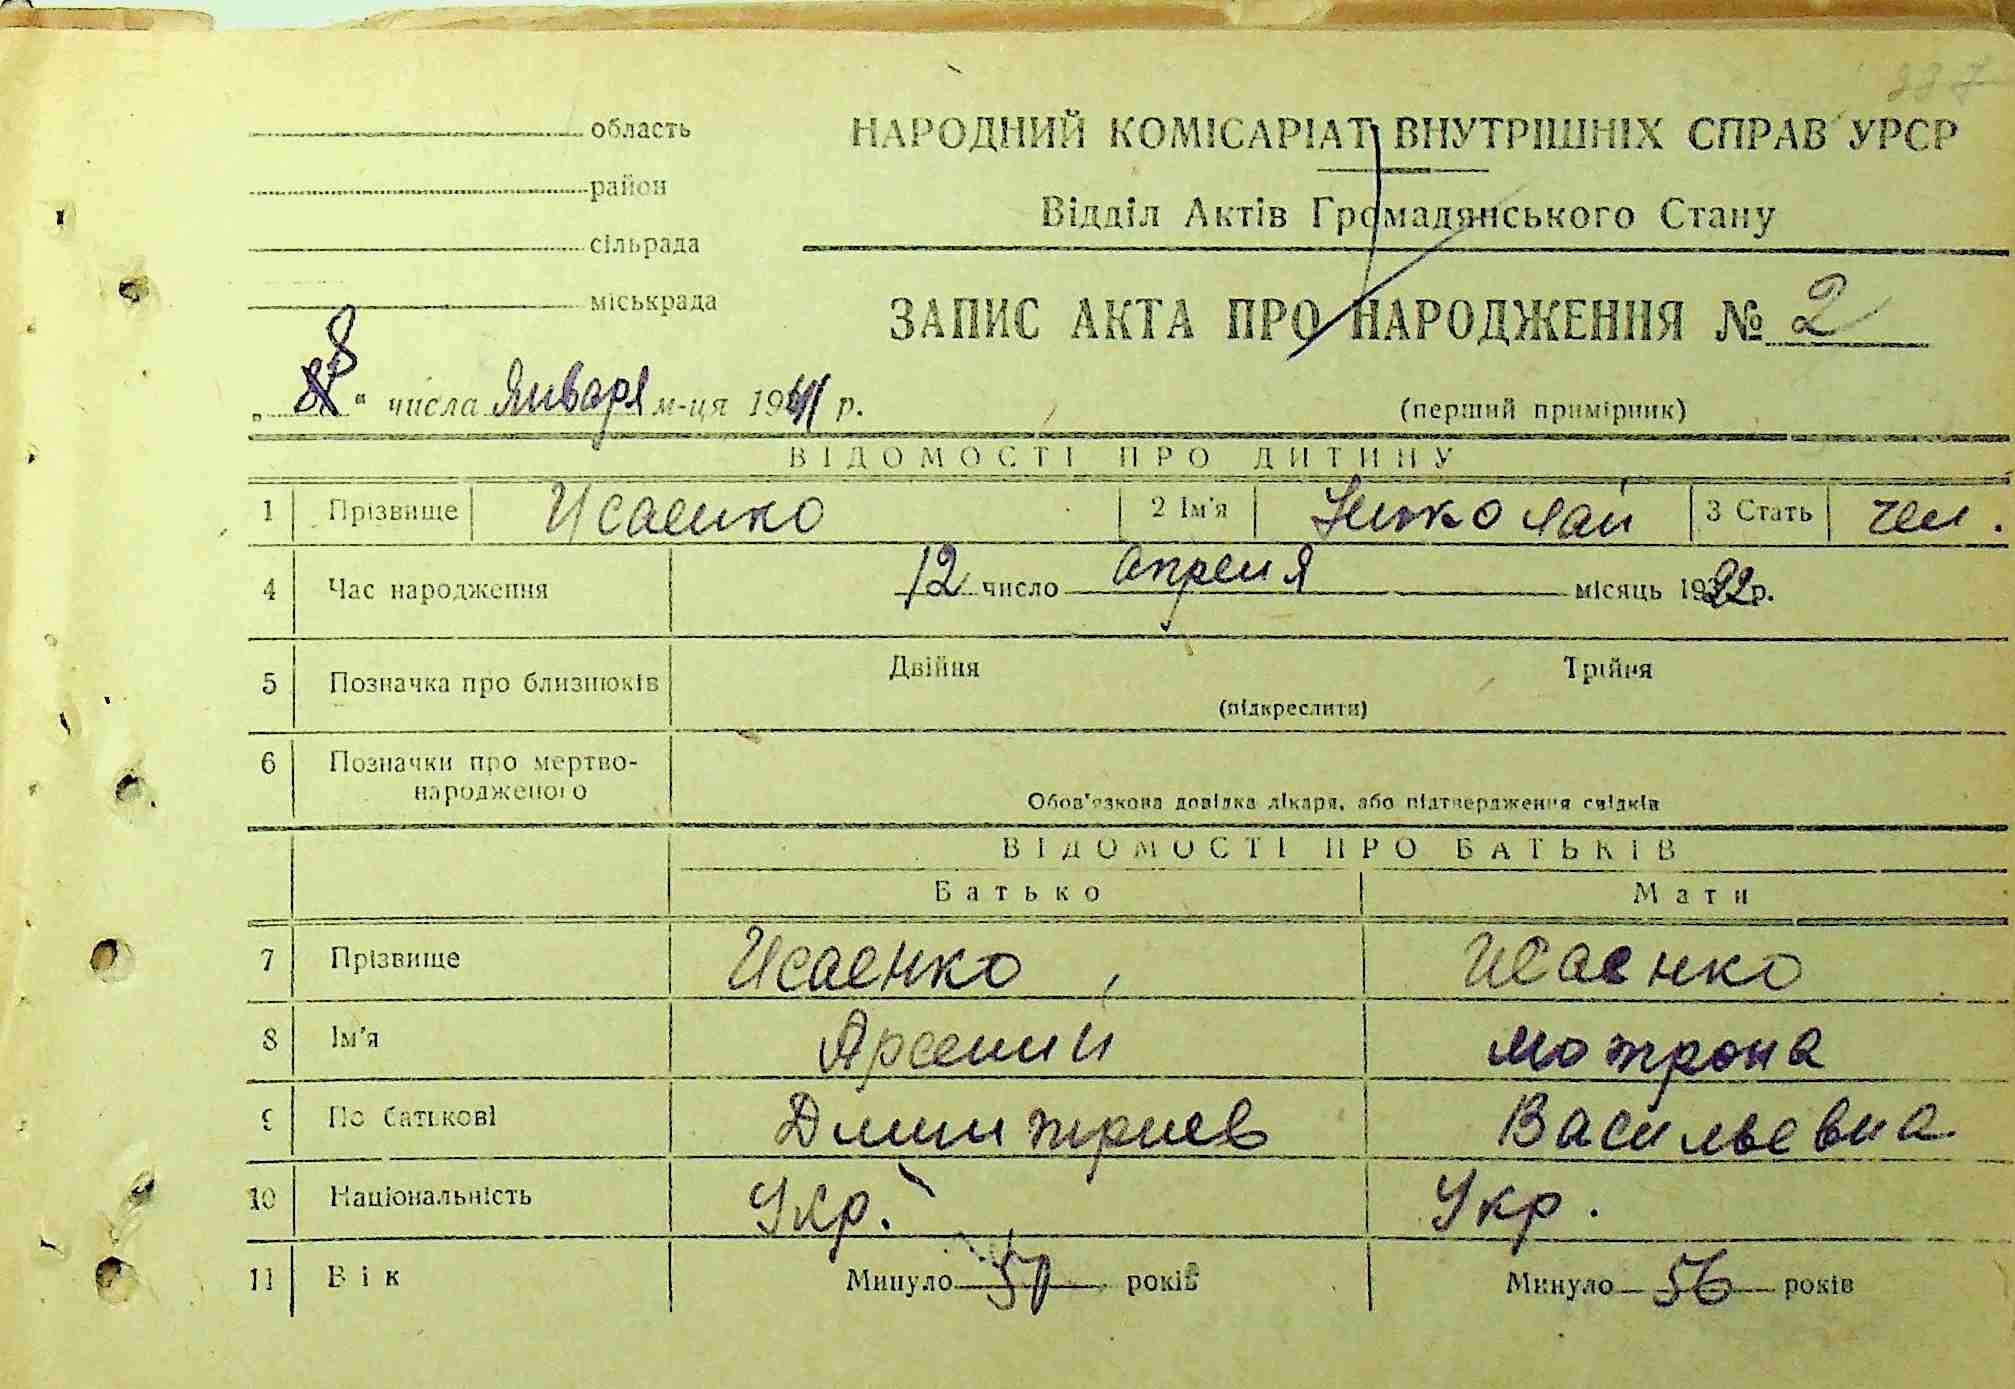 237
область
район
сільрада
міськрада
НАРОДНИЙ КОМІСАРІАТ ВНУТРІШНІХ СПРАВ УРСР
Відділ Актів Громадянського Стану
ЗАПИС АКТА ПРО НАРОДЖЕННЯ № 2
„ 8 “ числа Января м-ця 1941 р.
(перший примірник)
ВІДОМОСТІ ПРО ДИТИНУ
1 Прізвище Исаенко 2 Ім'я Николай 3 Стать чел.
4 Час народження 12 число Апреля місяць 1922 р.
5 Позначка про близнюків Двійня Трійня
(підкреслити)
6 Позначки про мертво-
народженого
Обов'язкова довідка лікаря, або підтвердження свідків
ВІДОМОСТІ ПРО БАТЬКІВ
Батько Мати
7 Прізвище Исаенко Исаенко
8 Ім'я Арсений Мотрона
9 По батькові Дмитриев Васильевна
10 Національність Укр. Укр.
11 Вік Минуло 57 років Минуло 56 років